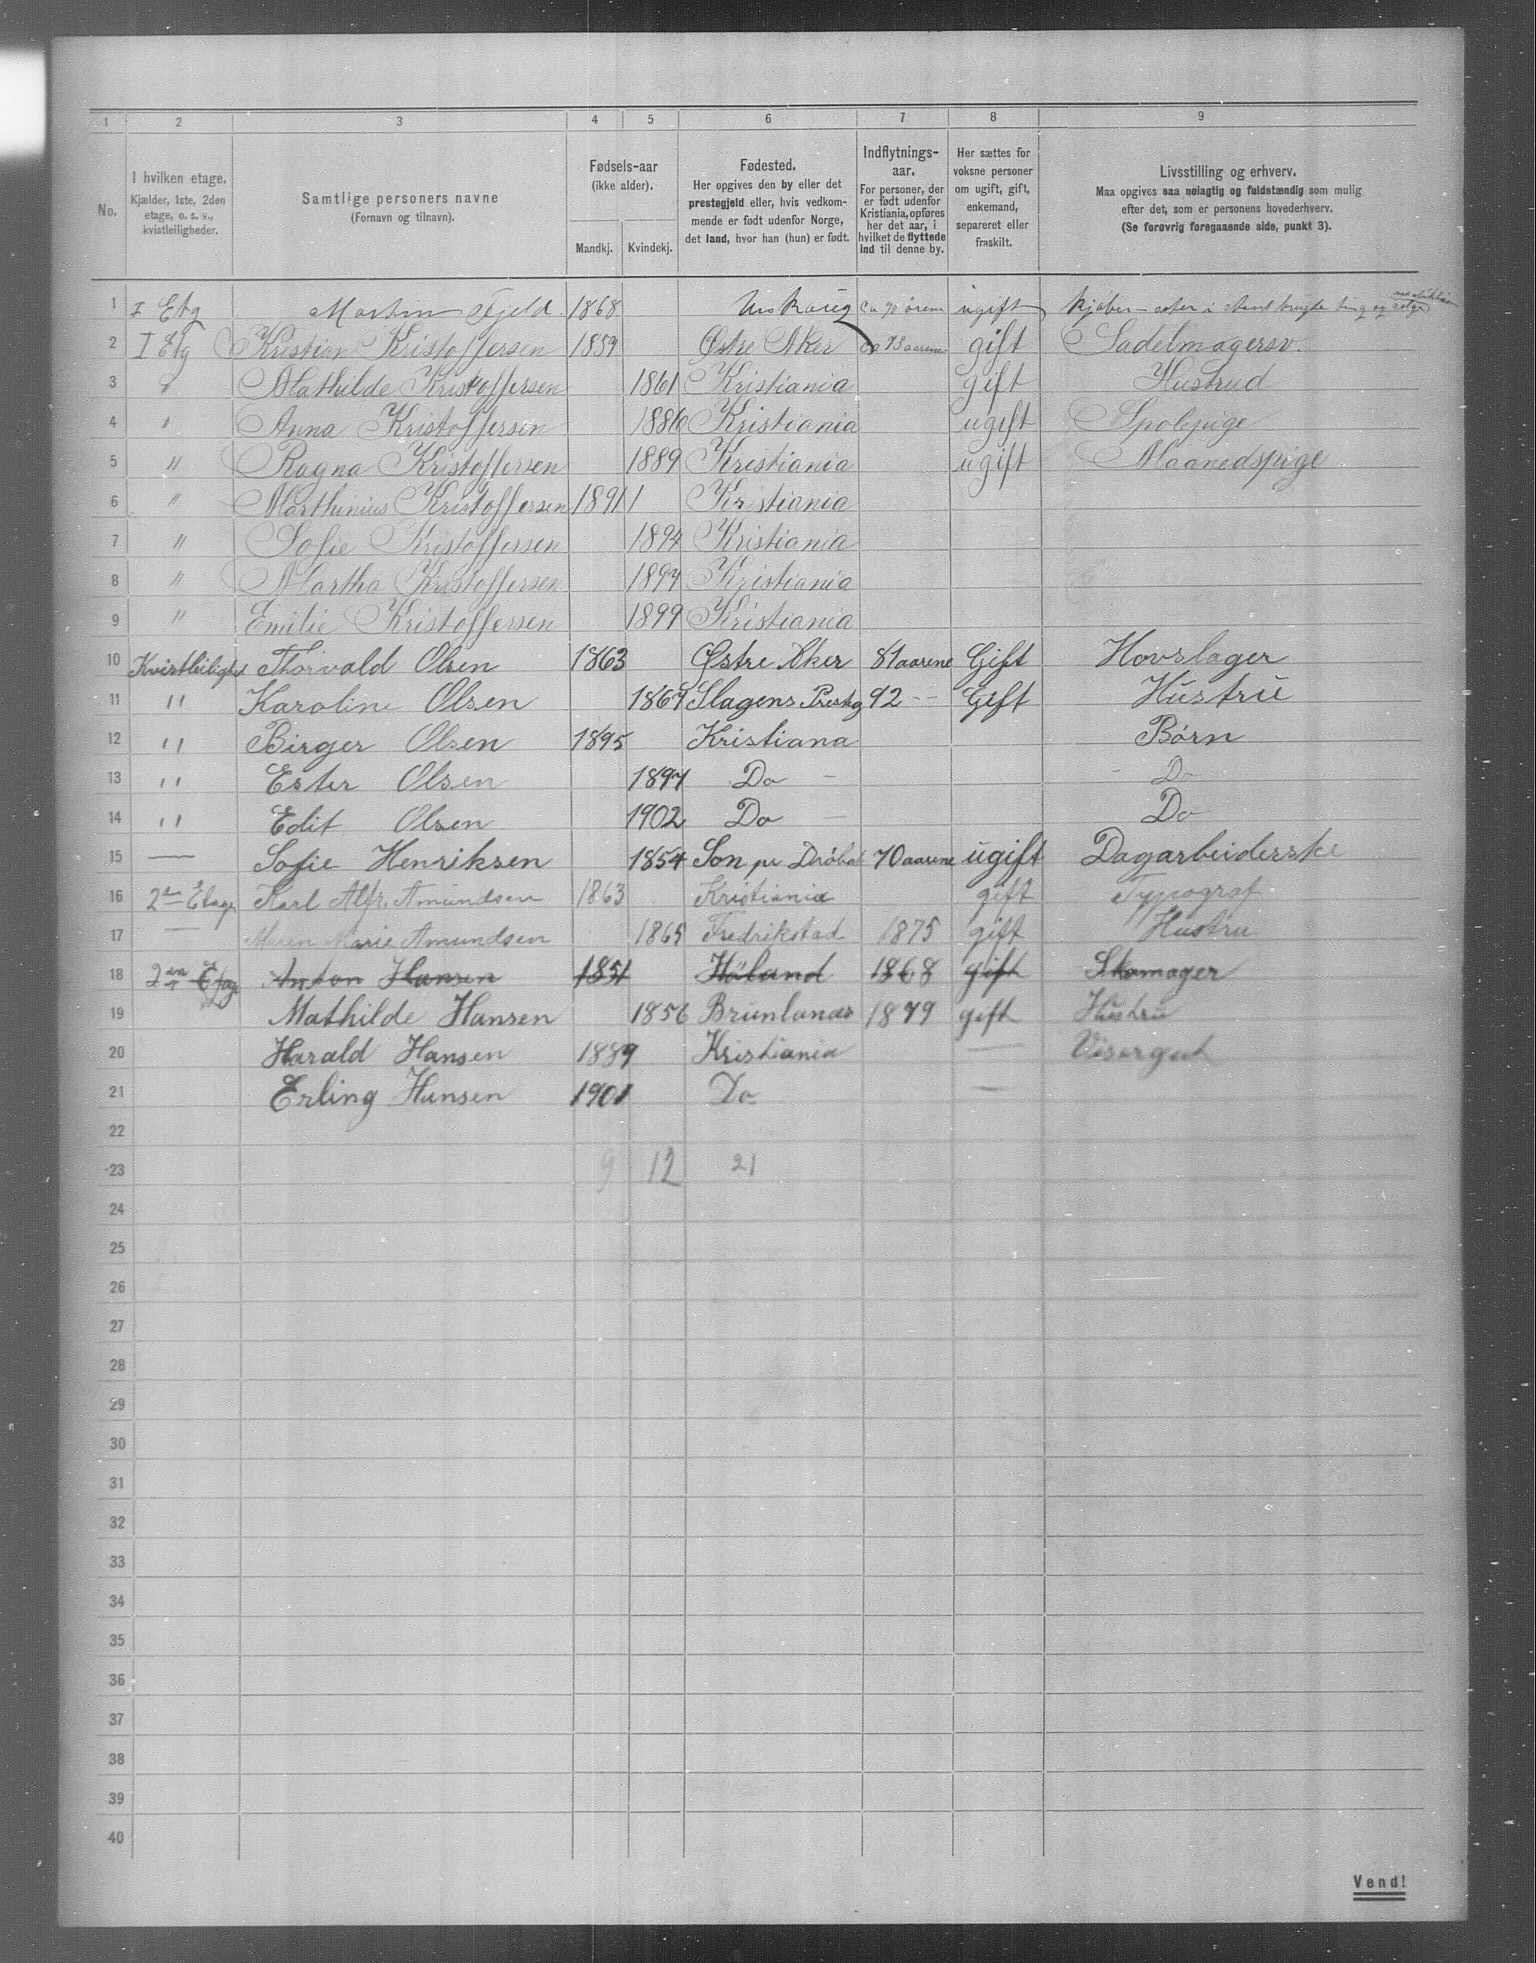 1 2 3 4 5 6 7 8 9
No.
I hvilken etage.
Kjælder, 1ste, 2den
etage, o. s. v.,
kvistleiligheder.
Samtlige personers navne
(Fornavn og tilnavn).
Fødsels-aar
(ikke alder).
Mandkj. Kvindekj.
Fødested.
Her opgives den by eller det
prestegjeld eller, hvis vedkom-
mende er født udenfor Norge,
det land, hvor han (hun) er født.
Indflytnings-
aar.
For personer, der
er født udenfor
Kristiania, opføres
her det aar, i
hvilket de flyttede
ind til denne by.
Her sættes for
voksne personer
om ugift, gift,
enkemand,
separeret eller
fraskilt.
Livsstilling og erhverv.
Maa opgives saa nøiagtig og fuldstændig som mulig
efter det, som er personens hovederhverv.
(Se forøvrig foregaaende side, punkt 3).
1 I Etg Martin Fjeld 1868 ugift kjøber brugte ting og
2 I Etg Kristian Kristoffersen 1859 Østre Aker ca 73 aarene gift Sadelmagersv.
3 " Mathilde Kristoffersen 1861 Kristiania gift Hustrud
4 " Anna Kristoffersen 1886 Kristiania ugift
5 " Ragna Kristoffersen 1889 Kristiania ugift Maanedspige
6 " Marthinius Kristoffersen 1891 Kristiania
7 " Sofie Kristoffersen 1894 Kristiania
8 " Martha Kristoffersen 1897 Kristiania
9 " Emilie Kristoffersen 1899 Kristiania
10 Kvistleilighed Thorvald Olsen 1863 Østre Aker 81 aarene Gift Hovslager
11 " Karoline Olsen 1867 Slagens Prestg 92 -- Gift Hustru
12 " Birger Olsen 1895 Kristiana Børn
13 " Ester Olsen 1897 Do - Do
14 " Edit Olsen 1902 Do - Do
15 — Sofie Henriksen 1854 Son pr Drøbak 70 aarene ugift Dagarbeiderske
16 2en Etage Karl Alfr. Amundsen 1863 Kristiania gift Typograf
17 — Maren Marie Amundsen 1865 Fredrikstad 1875 gift Hustru
18 2en Etage Anton Hansen 1851 Høland 1868 gift Skomager
19 Mathilde Hansen 1856 Brunlanæs 1879 gift Hustru
20 Harald Hansen 1889 Kristiania — Visergut
21 Erling Hansen 1901 Do —
22
23 9 12 21
24
25
26
27
28
29
30
31
32
33
34
35
36
37
38
39
40
Vend!